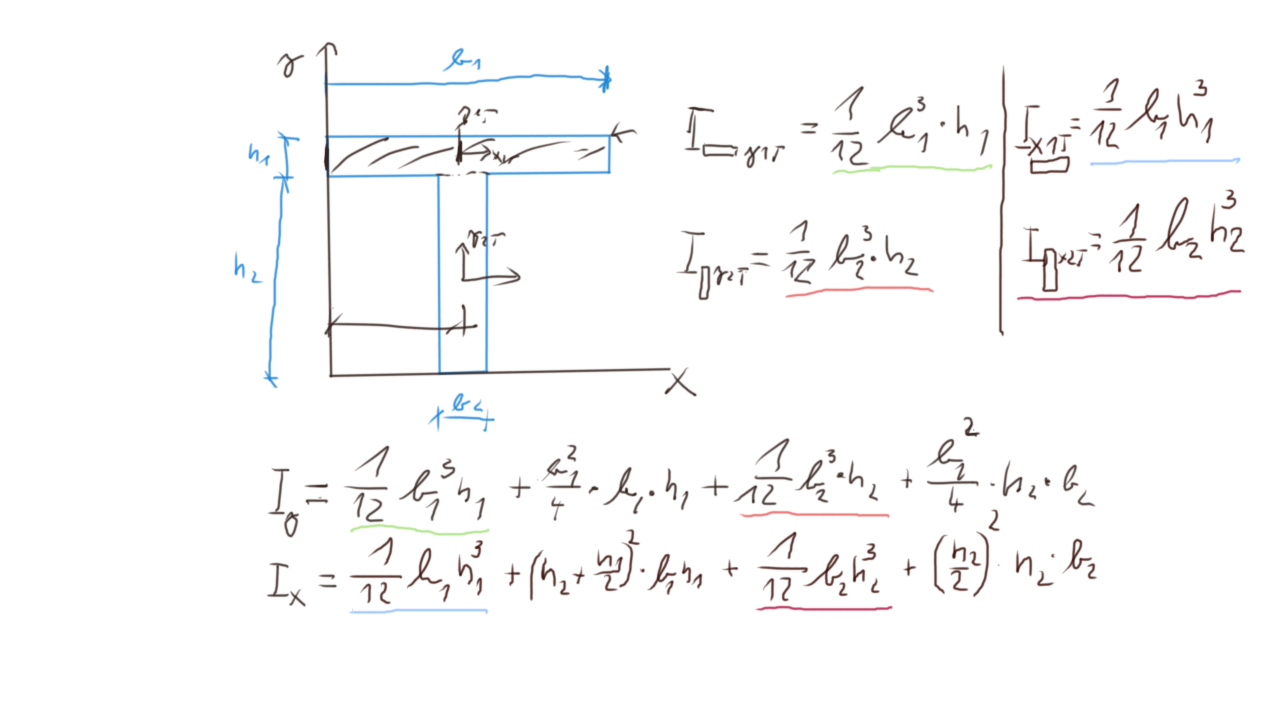 y
b₁
h₁
y1T
x1T
h₂
y2T
x
b₂
I▭y1T = 1/12 b₁³·h₁
Ix1T▭ = 1/12 b₁h₁³
I▯y2T = 1/12 b₂³·h₂
I▯x2T = 1/12 b₂h₂³
Iy = 1/12 b₁³h₁ + b₁²/4 · b₁·h₁ + 1/12 b₂³·h₂ + b₁²/4 ·h₂·b₂
Ix = 1/12 b₁h₁³ + (h₂+h₁/2)²·b₁h₁ + 1/12 b₂h₂³ + (h₂/2)²·h₂·b₂